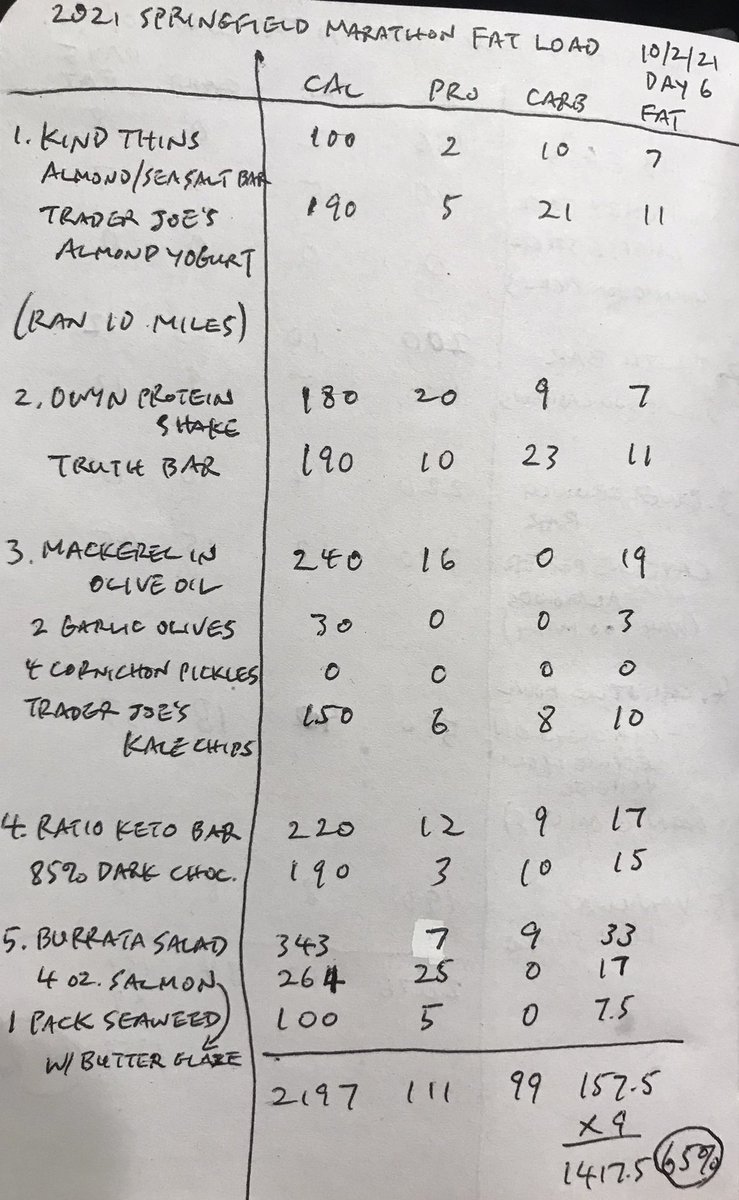 2021 SPRINGFIELD MARATHON FAT LOAD 10/2/21
DAY 6
CAL PRO CARB FAT
1. KIND THINS 100 2 10 7
ALMOND/SEA SALT BAR
TRADER JOE'S 190 5 21 11
ALMOND YOGURT
(RAN 10 MILES)
2. OWYN PROTEIN 180 20 9 7
SHAKE
TRUTH BAR 190 10 23 11
3. MACKEREL IN 240 16 0 19
OLIVE OIL
2 GARLIC OLIVES 30 0 0 3
4 CORNICHON PICKLES 0 0 0 0
TRADER JOE'S 150 6 8 10
KALE CHIPS
4. RATIO KETO BAR 220 12 9 17
85% DARK CHOC. 190 3 10 15
5. BURRATA SALAD 343 7 9 33
4 OZ. SALMON 264 25 0 17
1 PACK SEAWEED 100 5 0 7.5
W/ BUTTER GLAZE
2197 111 99 157.5
X 9
1417.5 65%